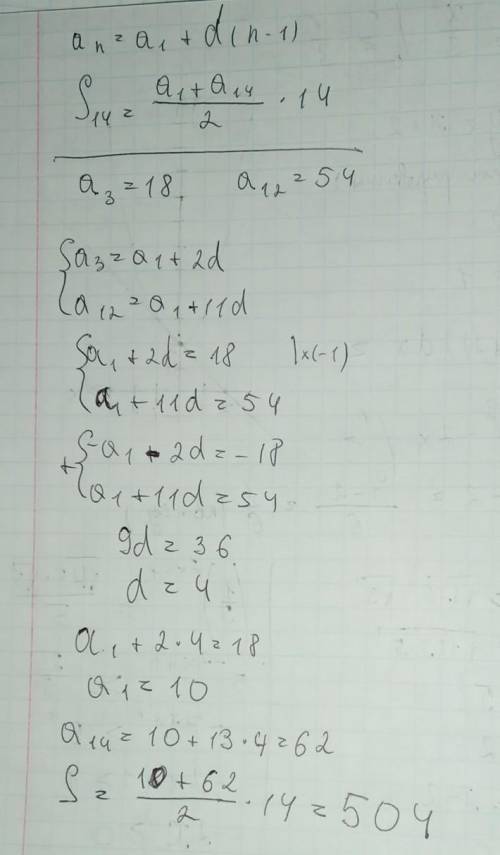 aₙ = a₁ + d(n-1)
S₁₄ = (a₁ + a₁₄)/2 · 14
a₃ = 18, a₁₂ = 54
{a₃ = a₁ + 2d
a₁₂ = a₁ + 11d
{a₁ + 2d = 18 |×(-1)
a₁ + 11d = 54
+{-a₁ - 2d = -18
a₁ + 11d = 54
9d = 36
d = 4
a₁ + 2·4 = 18
a₁ = 10
a₁₄ = 10 + 13·4 = 62
S = (10 + 62)/2 · 14 = 504